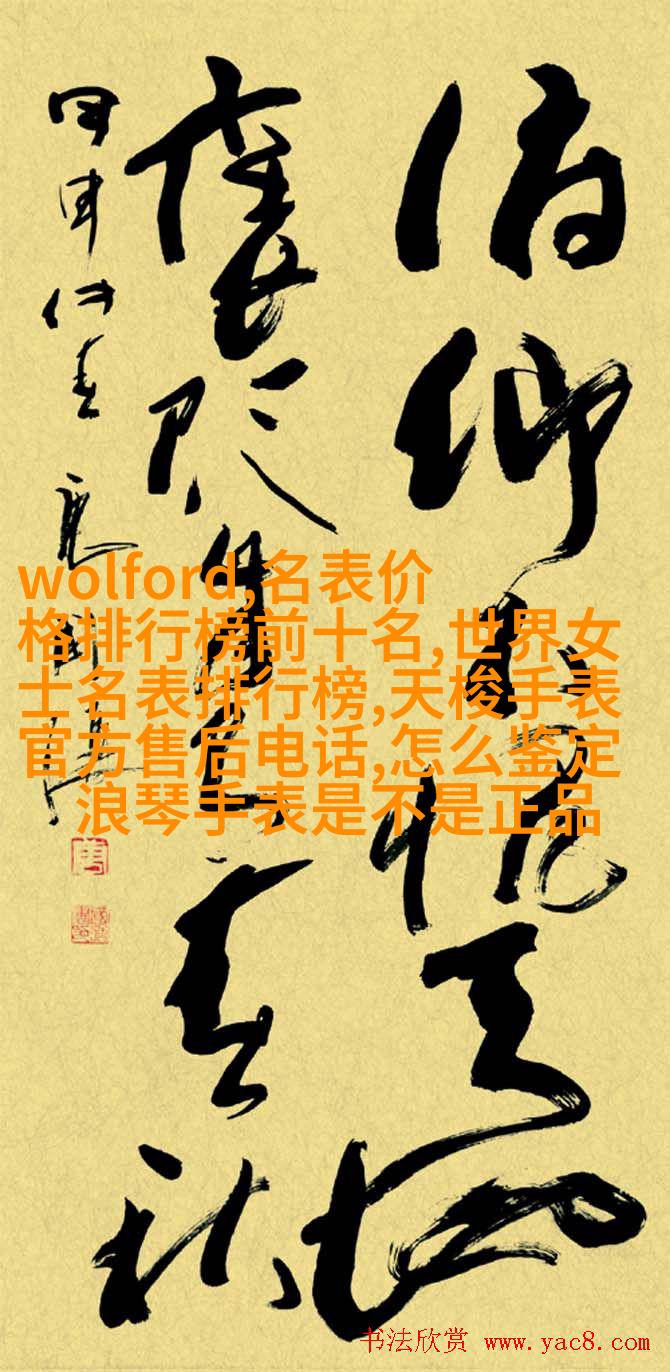 俯仰愧天地
褒贬自有春秋
甲申仲春
wolford,名表价
格排行榜前十名,世界女
士名表排行榜,天梭手表
官方售后电话,怎么鉴定
浪琴手表是不是正品
书法欣赏 www.yac8.com